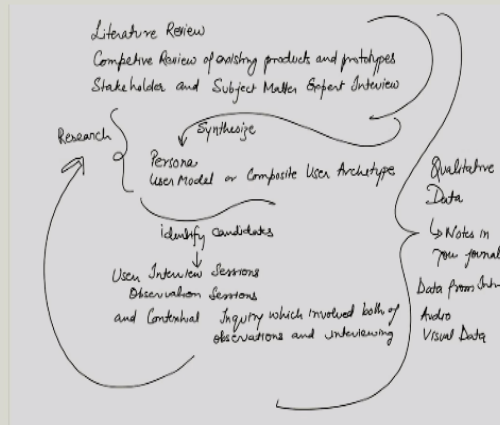 Literature Review
Competive Review of existing products and prototypes
Stakeholder and Subject Matter Expert Interview
Research
Synthesize
Persona
User Model or Composite User Archetype
identify candidates
User Interview Sessions
Observation Sessions
and Contextual Inquiry which involved both of
observations and interviewing
Qualitative
Data
Notes in
your journal
Data from
Audio
Visual Data